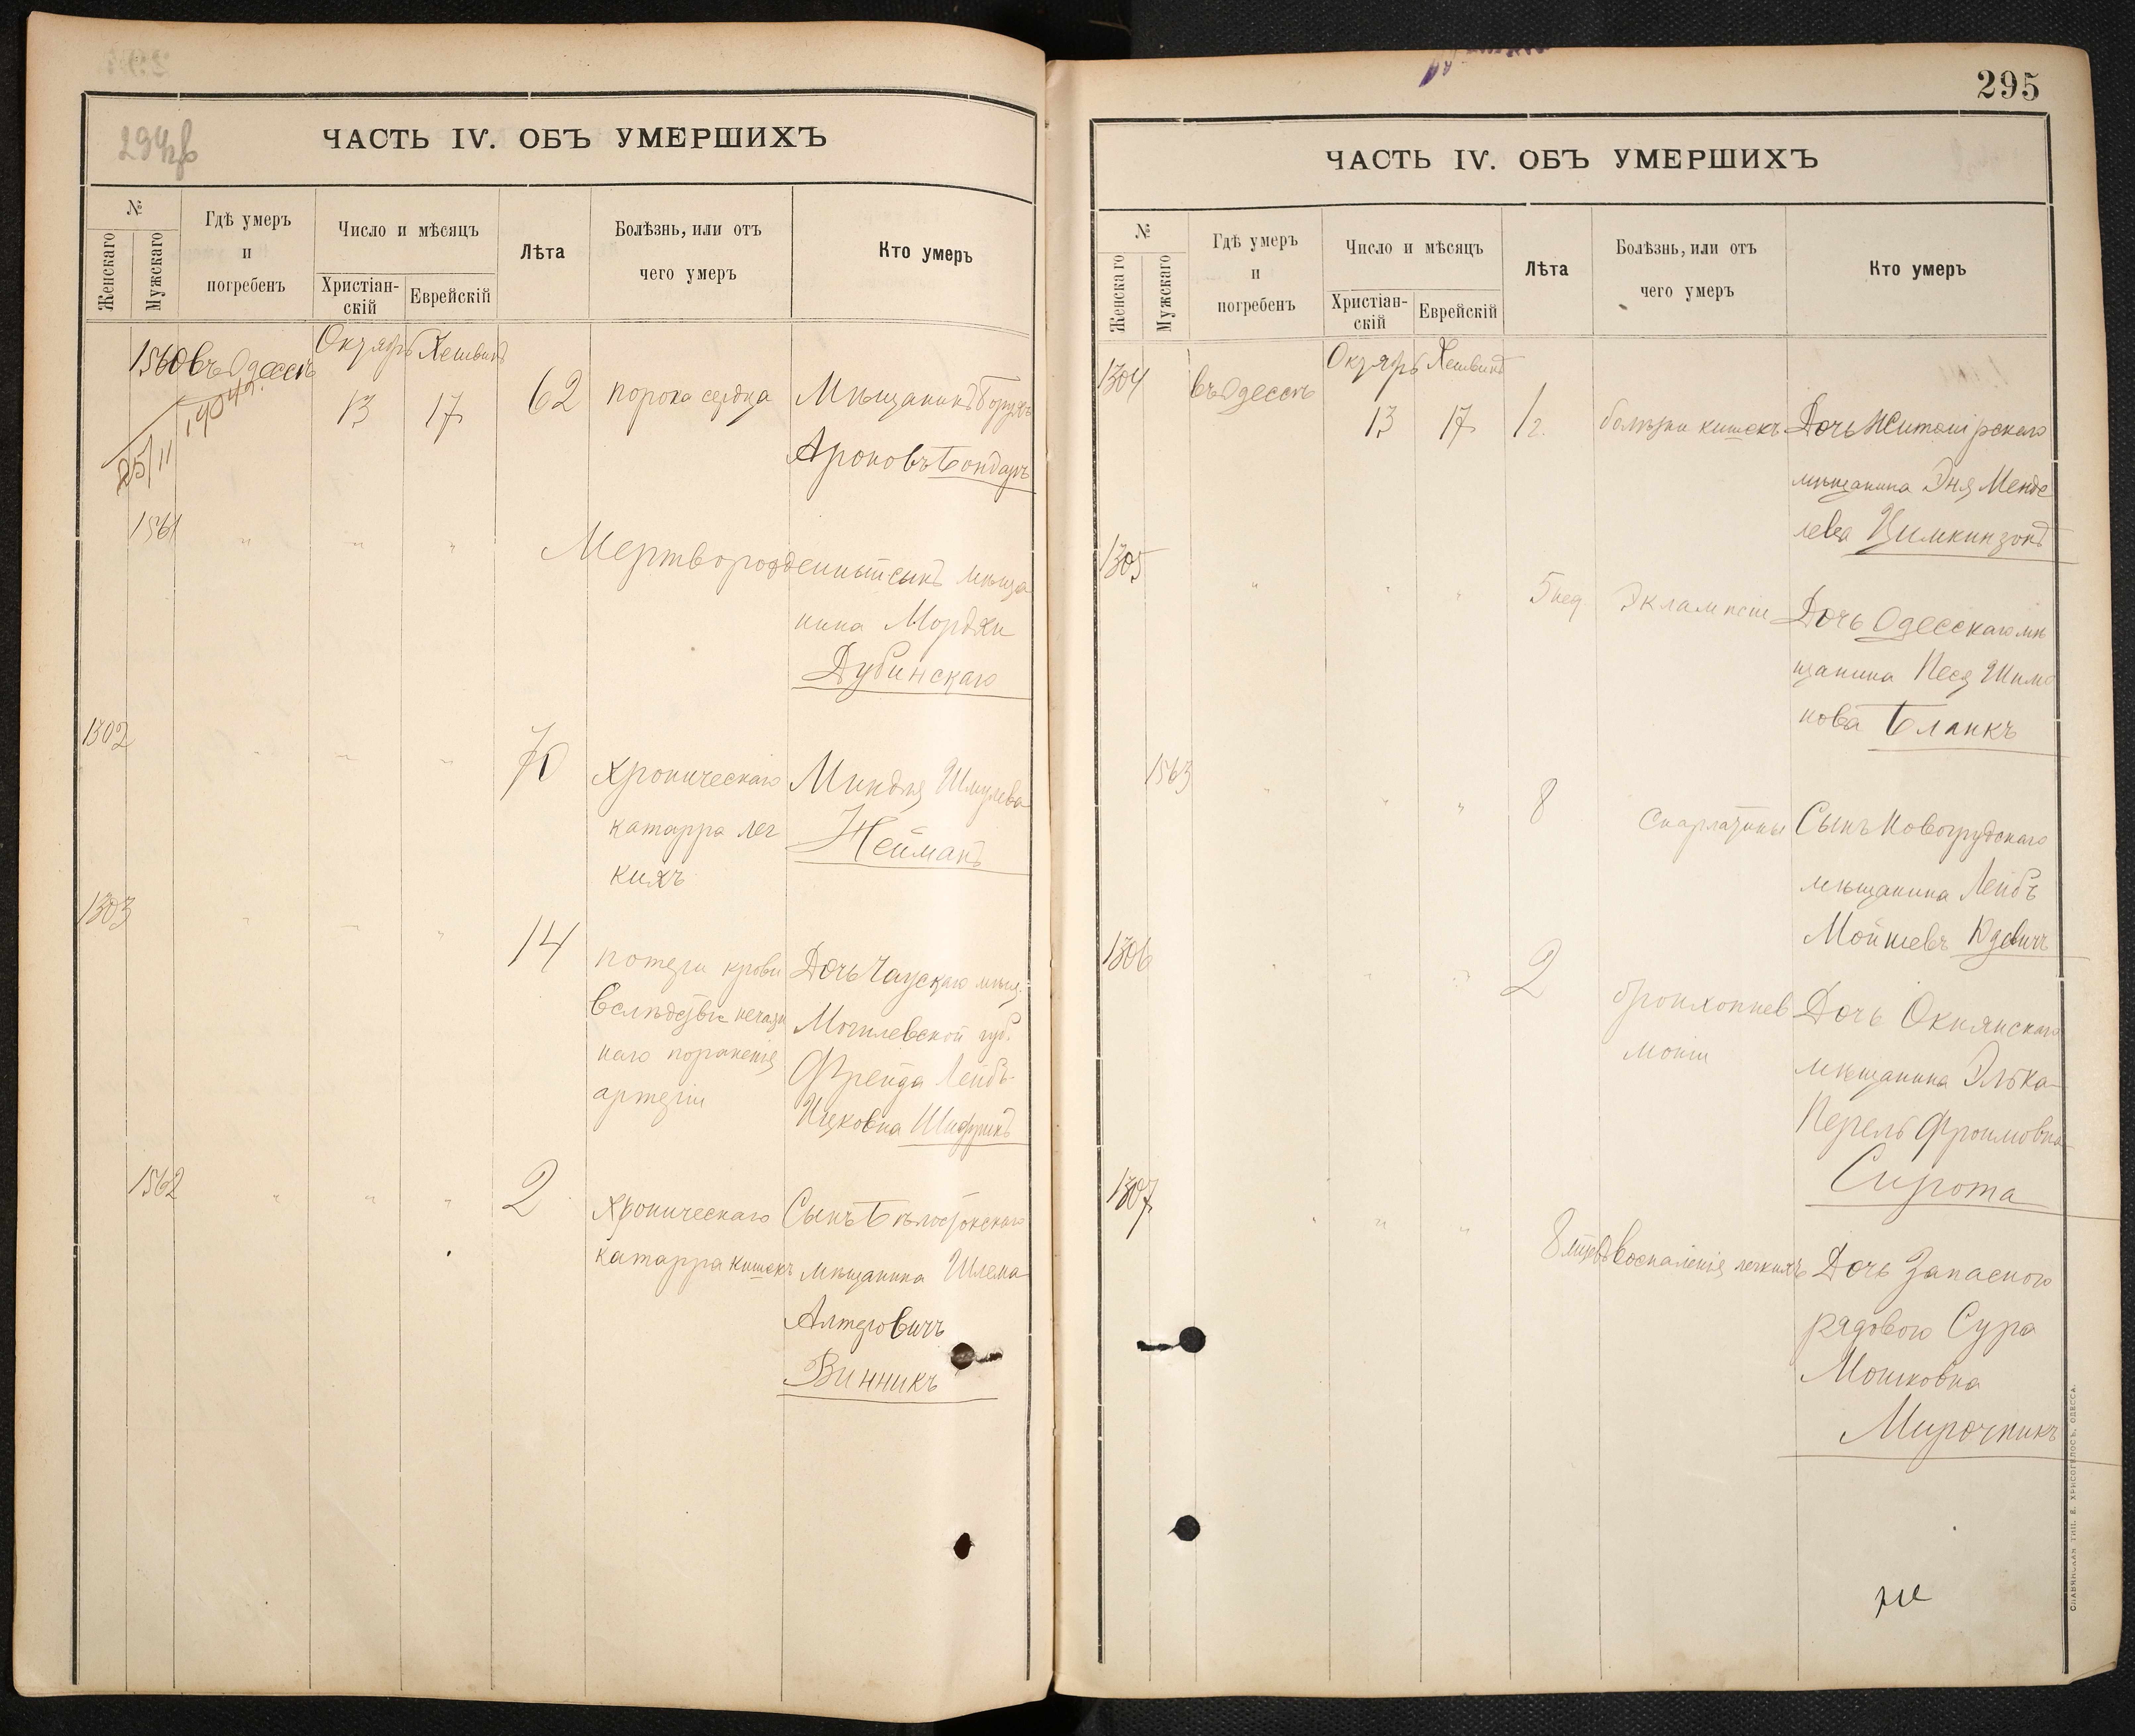 294об
ЧАСТЬ IV. ОБЪ УМЕРШИХЪ
№
Женскаго
Мужскаго
Гдѣ умеръ
и
погребенъ
Число и мѣсяцъ
Христіан-
скій
Еврейскій
Лѣта
Болѣзнь, или отъ
чего умеръ
Кто умеръ
Октябрь Хешвинъ
1560 въ Одессѣ 13 17 62 порока сердца Мѣщанинъ
Ароновъ Бондарь
25/11
1561 " " " Мертворожденный сынъ мѣща
нина Мордхи
Дубинскаго
1302 " " " 70 хроническаго Миндля Шмулева
катарра лег Нейманъ
кихъ
1303 " " " 14 потери крови Дочь Чаускаго мѣщ.
вслѣдствіе нечаян Могилевской губ.
наго пораненія Фрейда Лейбъ-
артеріи Ицковна Шифринъ
1562 " " " 2 хроническаго Сынъ Бѣлостокскаго
катарра кишекъ мѣщанина Шлема
Алтеровичъ
Винникъ
295
ЧАСТЬ IV. ОБЪ УМЕРШИХЪ
№
Женскаго
Мужскаго
Гдѣ умеръ
и
погребенъ
Число и мѣсяцъ
Христіан-
скій
Еврейскій
Лѣта
Болѣзнь, или отъ
чего умеръ
Кто умеръ
Октябрь Хешвинъ
1304 въ Одессѣ 13 17 1 г. болѣзни кишекъ Дочь Житомірскаго
мѣщанина Эня Менде
лева Цимкинзонъ
1305 " " " 5 нед. Эклампсіи Дочь Одесскаго мѣ
щанина Песя Шимо
нова Бланкъ
1563 " " " 8 Скарлатины Сынъ Новогрудскаго
мѣщанина Лейбъ
Мойшевъ Юдевичъ
1306 " " " 2 бронхопнев Дочь Окнянскаго
моніи мѣщанина Элька-
Перель Фроимовна
Сирота
1307 " " " 8 мѣсяц. воспаленія легкихъ Дочь Запасного
рядового Сура
Мошковна
Мирочникъ
СЛАВЯНСКАЯ ТИП. Е. ХРИСОГЕЛОСЪ, ОДЕССА.